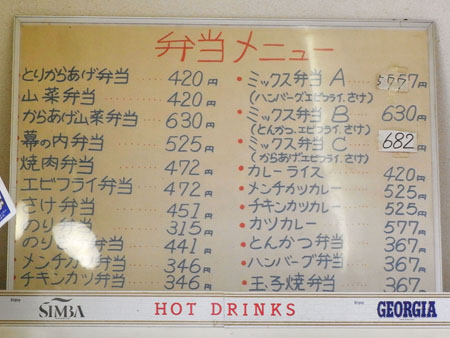 弁当メニュー
とりからあげ弁当 420円
山菜弁当 420円
からあげ山菜弁当 630円
幕の内弁当 525円
焼肉弁当 472円
エビフライ弁当 472円
さけ弁当 451円
のり弁当 315円
のり 弁当 441円
メンチカツ弁当 346円
チキンカツ弁当 346円
・ミックス弁当 A 557円
(ハンバーグ.エビフライ.さけ)
・ミックス弁当 B 630円
(とんかつ.エビフライ.さけ)
・ミックス弁当 C 682
(からあげ.エビフライ.さけ)
・カレーライス 420円
・メンチカツカレー 525円
・チキンカツカレー 525円
・カツカレー 577円
・とんかつ弁当 367円
・ハンバーグ弁当 367円
・玉子焼弁当 367円
SIMBA HOT DRINKS GEORGIA